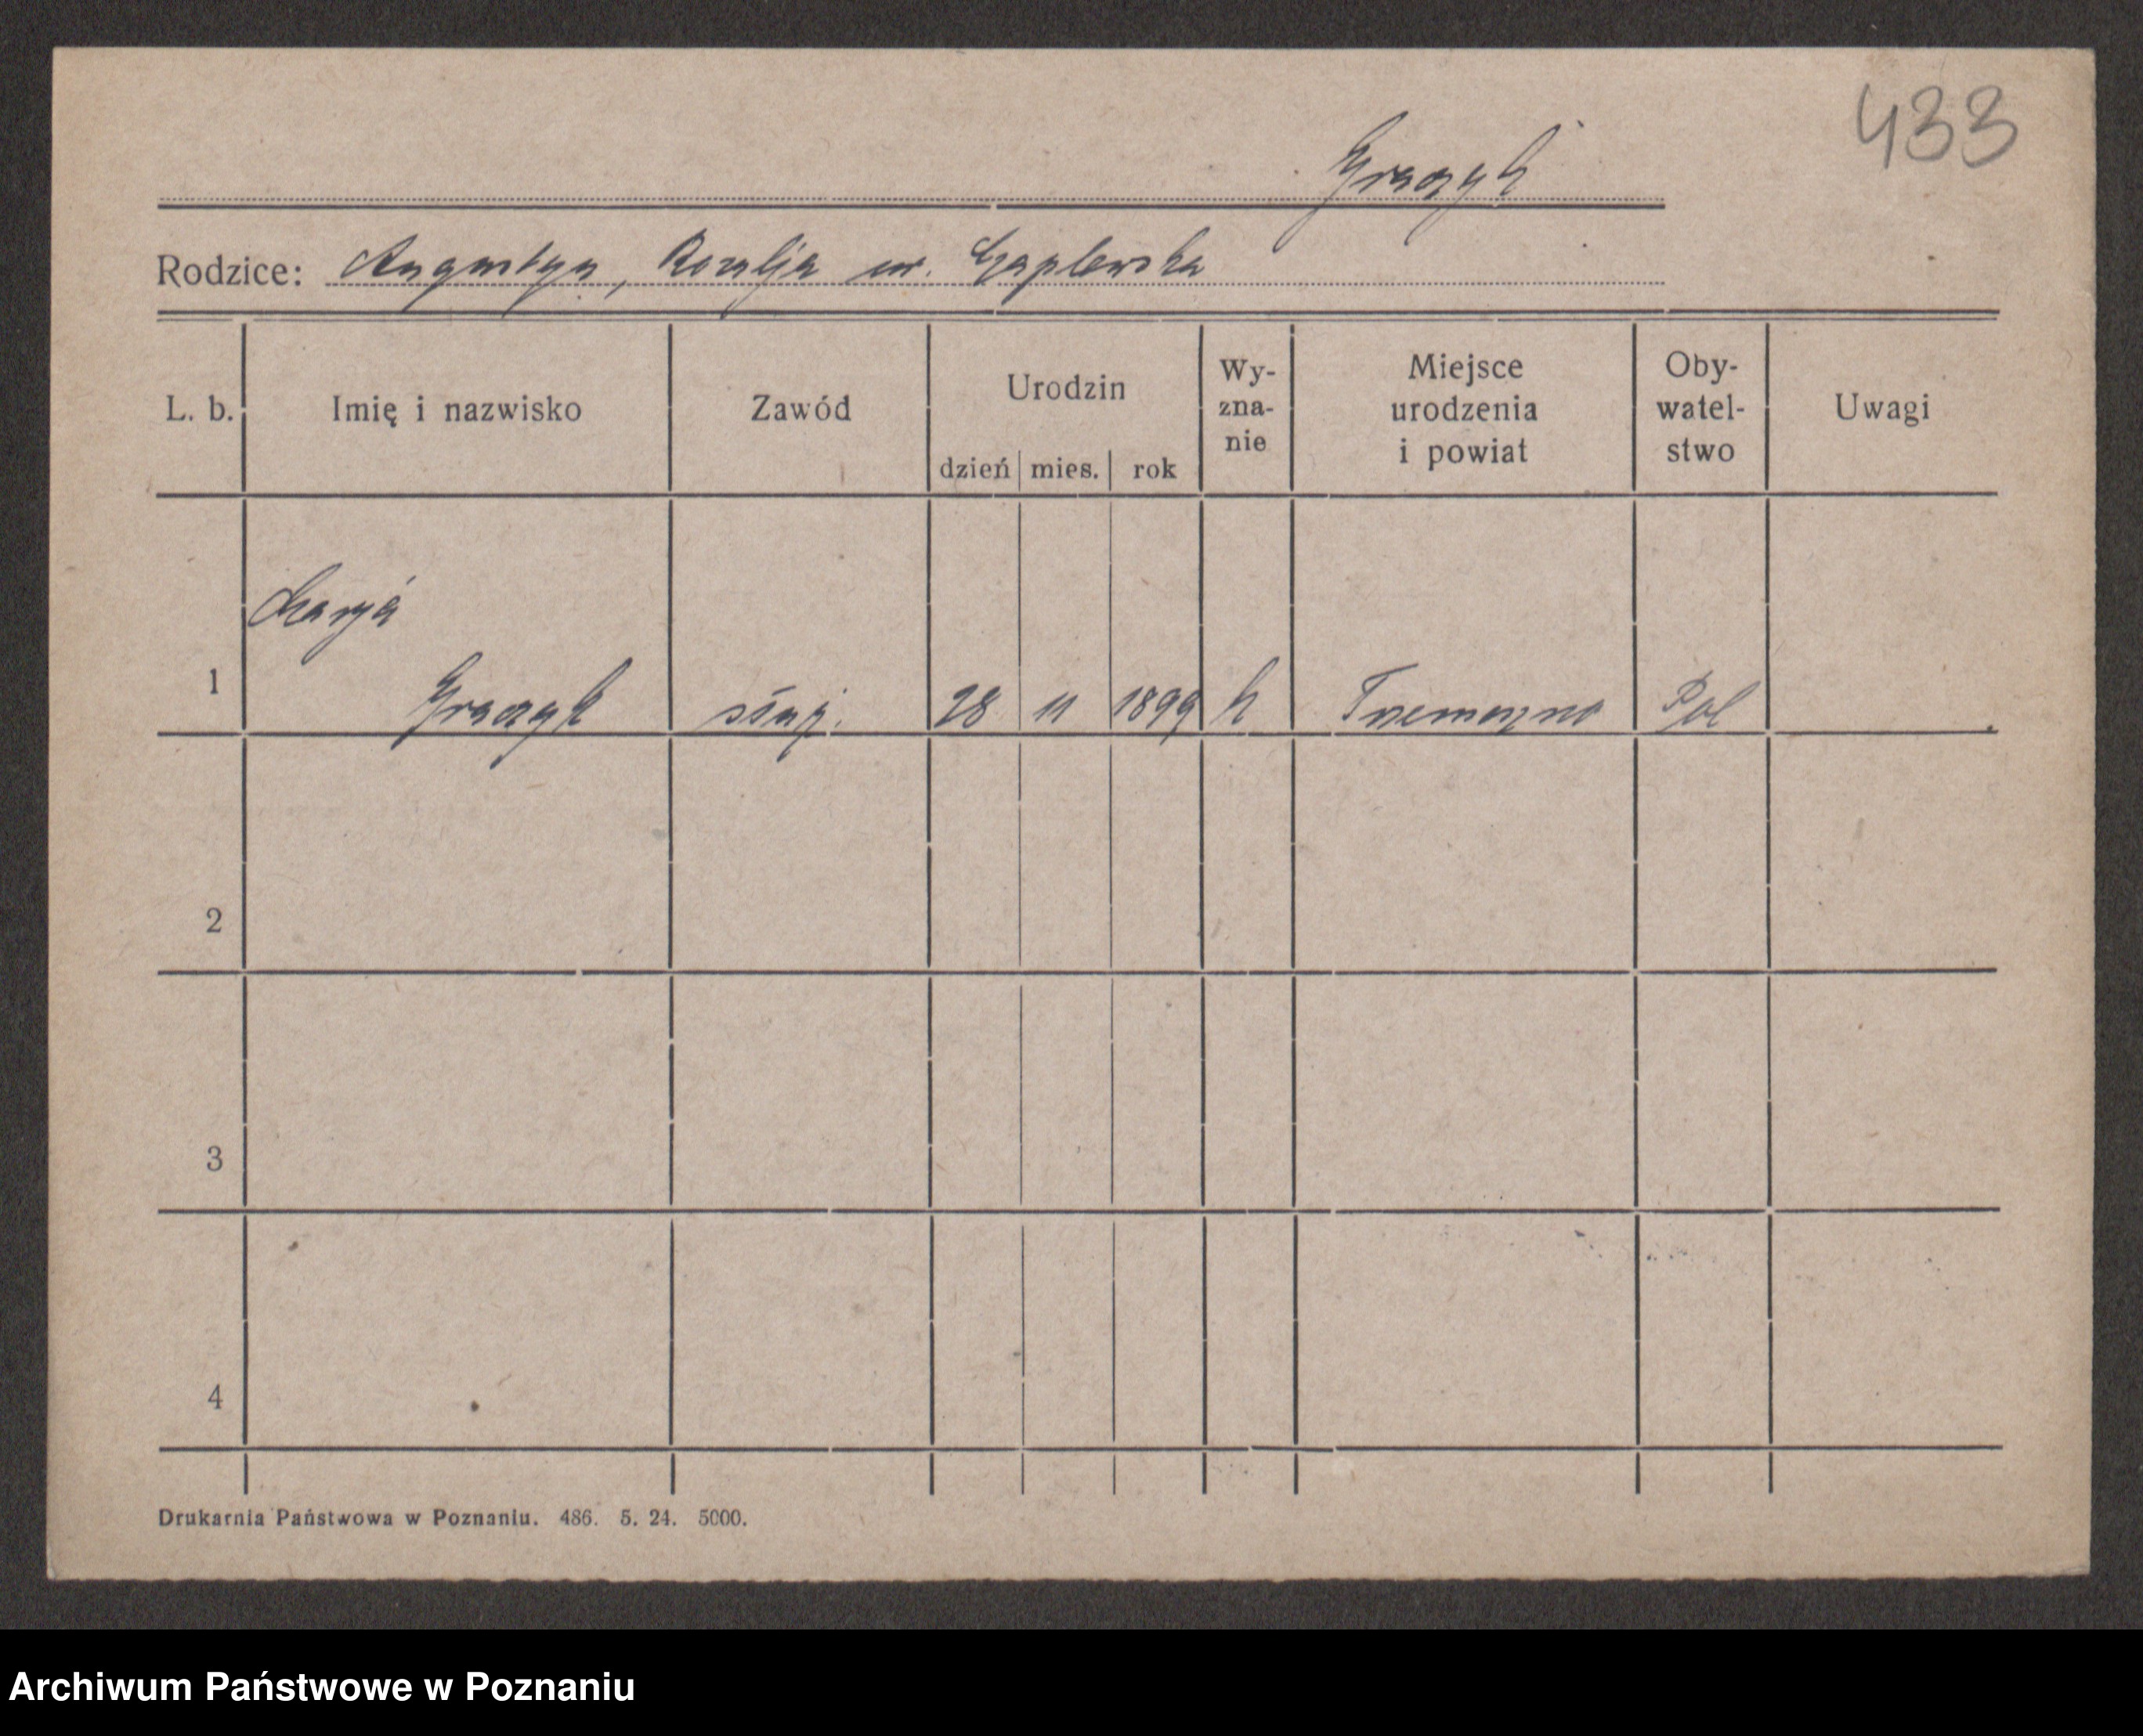 433
Graczyk
Rodzice: Augustyn, Rozalja ur. Czaplewska
L. b. Imię i nazwisko Zawód Urodzin dzień mies. rok Wy-zna-nie Miejsce urodzenia i powiat Oby-watel-stwo Uwagi
Marja
1 Graczyk służ. 28 11 1899 k Trzemeszno Pol
2
3
4
Drukarnia Państwowa w Poznaniu. 486. 5. 24. 5000.
Archiwum Państwowe w Poznaniu